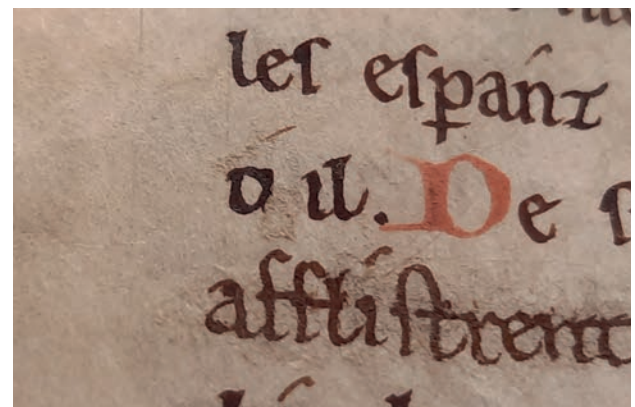 leſ eſpanz
o il. De ſ
affliſtrent